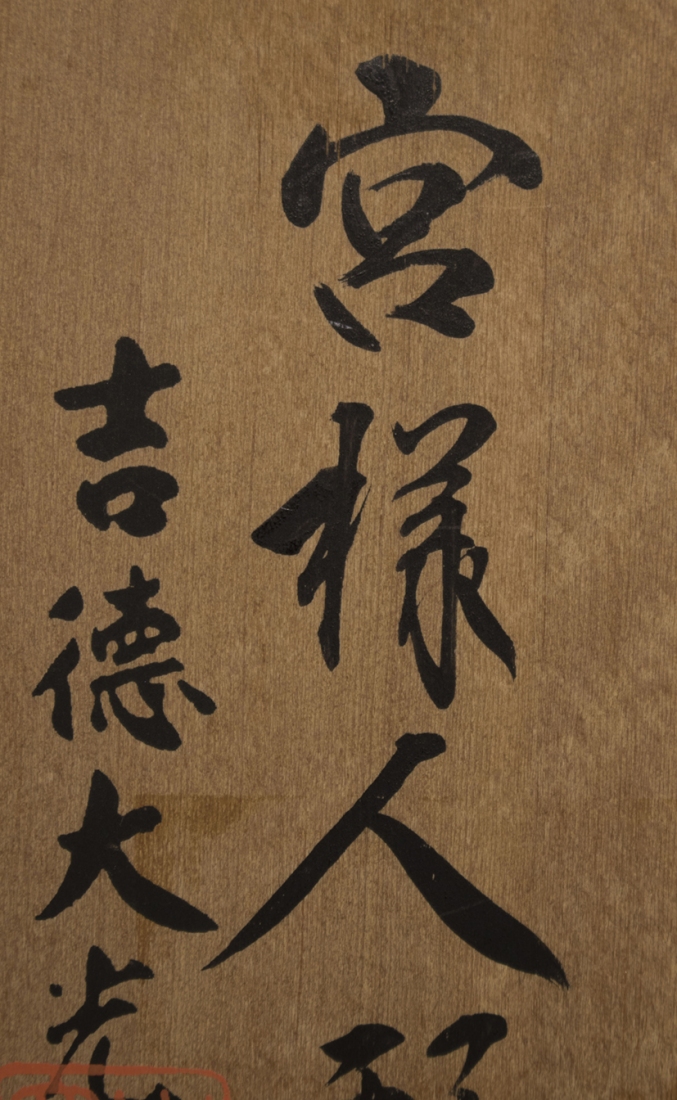 宮様人
吉德大光